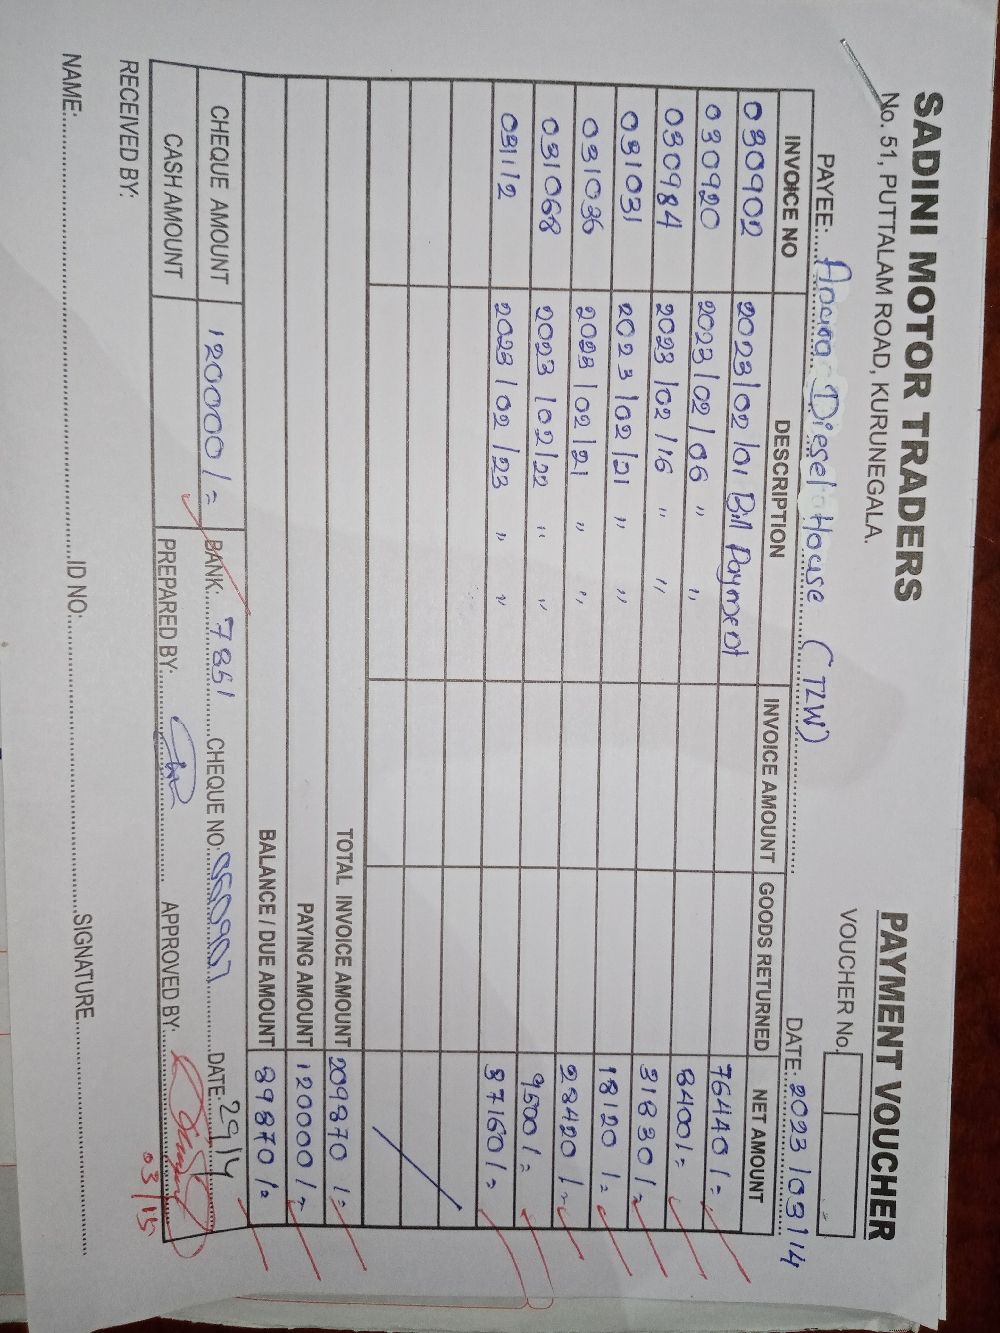 SADINI MOTOR TRADERS
No. 51, PUTTALAM ROAD, KURUNEGALA.
PAYMENT VOUCHER
VOUCHER No.
PAYEE: Diesel House (TLW)
DATE: 2023/03/14
INVOICE NO DESCRIPTION INVOICE AMOUNT GOODS RETURNED NET AMOUNT
030902 2023/02/01 Bill Payment 76440/=
030920 2023/02/06 " " 8400/=
030984 2023/02/16 " " 31830/=
031031 2023/02/21 " " 18120/=
031036 2023/02/21 " " 28420/=
031068 2023/02/22 " " 9500/=
031112 2023/02/23 " " 37160/=
TOTAL INVOICE AMOUNT 209870/=
PAYING AMOUNT 120000/=
BALANCE / DUE AMOUNT 89870/=
CHEQUE AMOUNT 120000/= BANK: CHEQUE NO: DATE: 29/4
CASH AMOUNT PREPARED BY: APPROVED BY:
03/15
RECEIVED BY:
NAME: ID NO: SIGNATURE